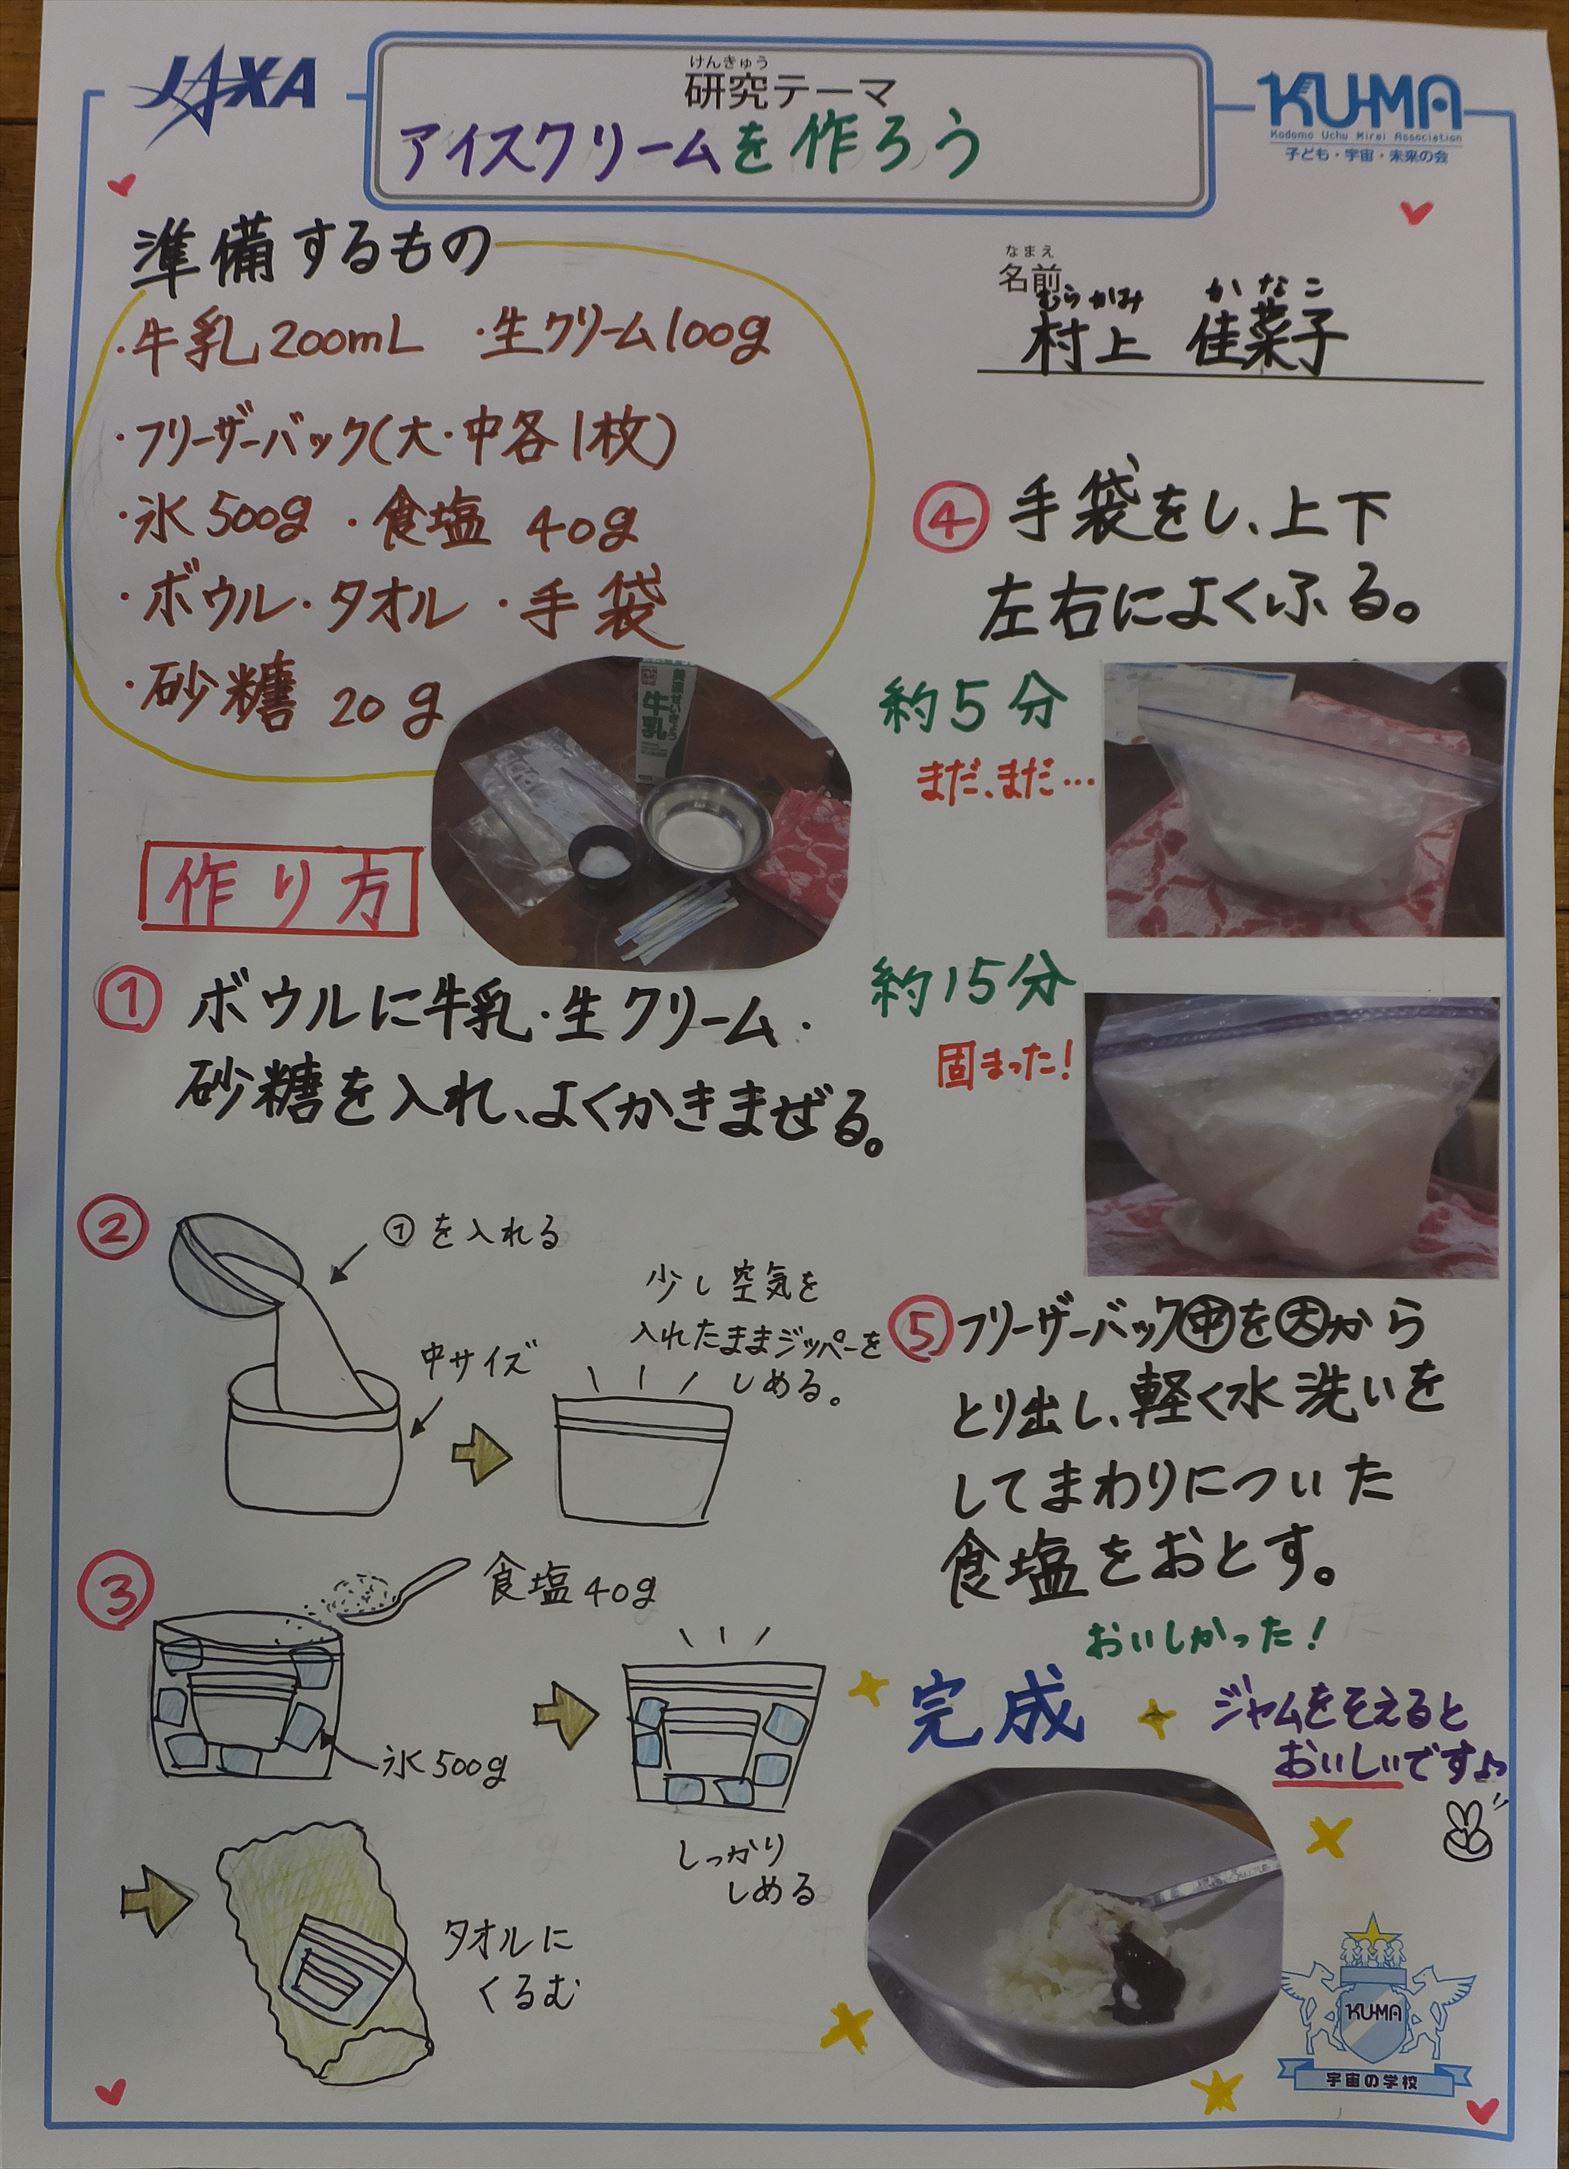 JAXA
けんきゅう
研究テーマ
アイスクリームを作ろう
KU-MA
Kodomo Uchu Mirai Association
子ども・宇宙・未来の会
準備するもの
・牛乳200mL ・生クリーム100g
・フリーザーバック(大・中各1枚)
・氷500g ・食塩 40g
・ボウル・タオル ・手袋
・砂糖 20g
牛乳
なまえ
名前
むらかみ かなこ
村上 佳菜子
作り方
① ボウルに牛乳・生クリーム・
砂糖を入れ、よくかきまぜる。
②
①を入れる
中サイズ
少し空気を
入れたままジッパーを
しめる。
③
食塩40g
氷500g
しっかり
しめる
タオルに
くるむ
④ 手袋をし、上下
左右によくふる。
約5分
まだ、まだ…
約15分
固まった!
⑤フリーザーバック㊥を㊅から
とり出し、軽く水洗いを
してまわりについた
食塩をおとす。
おいしかった!
完成
ジャムをそえると
おいしいです♪
KU-MA
宇宙の学校